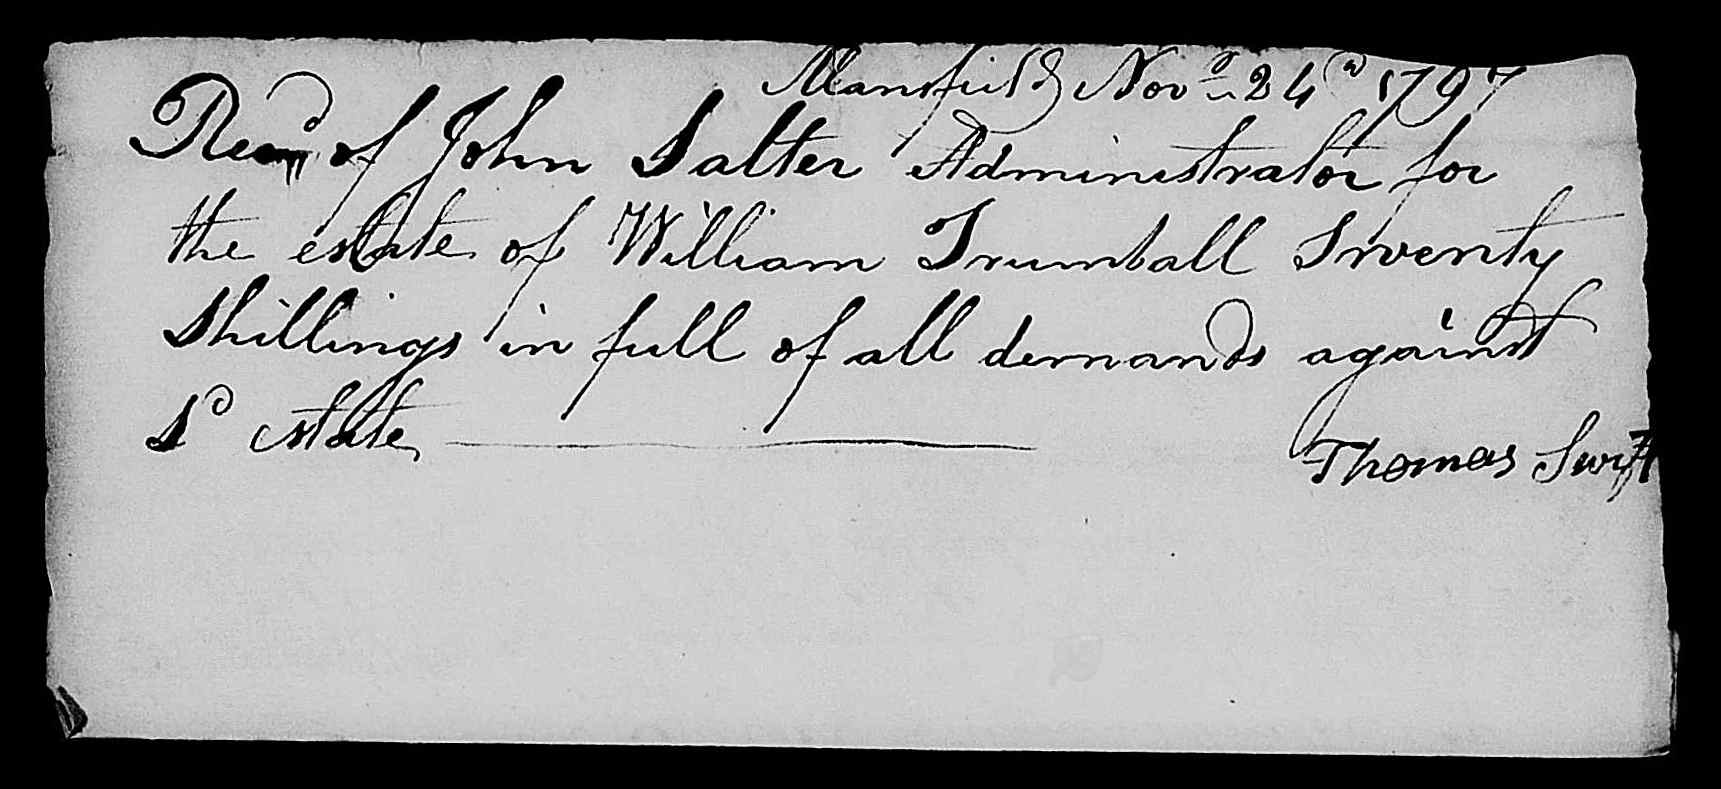 Mansfield Novr 24th 1797
Recd of John Salter Administrator for
the estate of William Trumball Twenty
Shillings in full of all demands against
Sd estate
Thomas Swift